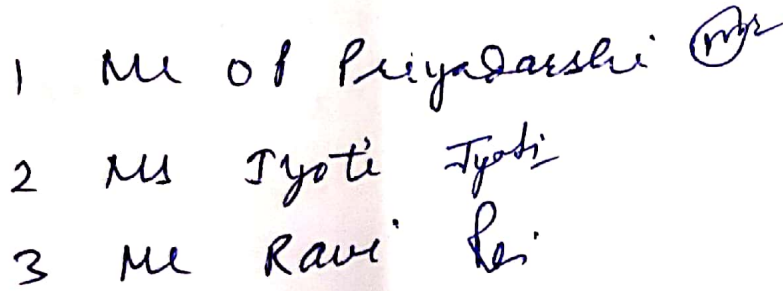 1 Mr OP Priyadarshi
2 Ms Jyoti Jyoti
3 Mr Ravi